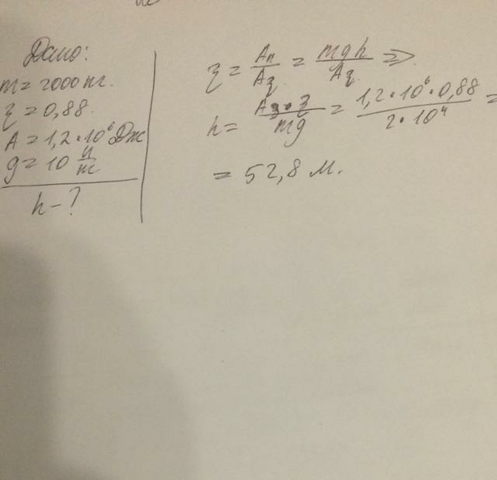 Дано:
m = 2000 кг.
η = 0,88.
A = 1,2 · 10⁶ Дж
g = 10 Н/м
h - ?
η = Aп/Aз = mgh/Aз ⇒
h = Aз · η/mg = 1,2 · 10⁶ · 0,88/2 · 10⁴ =
= 52,8 м.